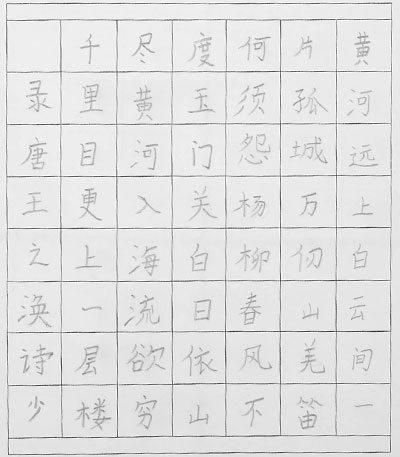 黄河远上白云间一
片孤城万仞山羌笛
何须怨杨柳春风不
度玉门关白日依山
尽黄河入海流欲穷
千里目更上一层楼
录唐王之涣诗少